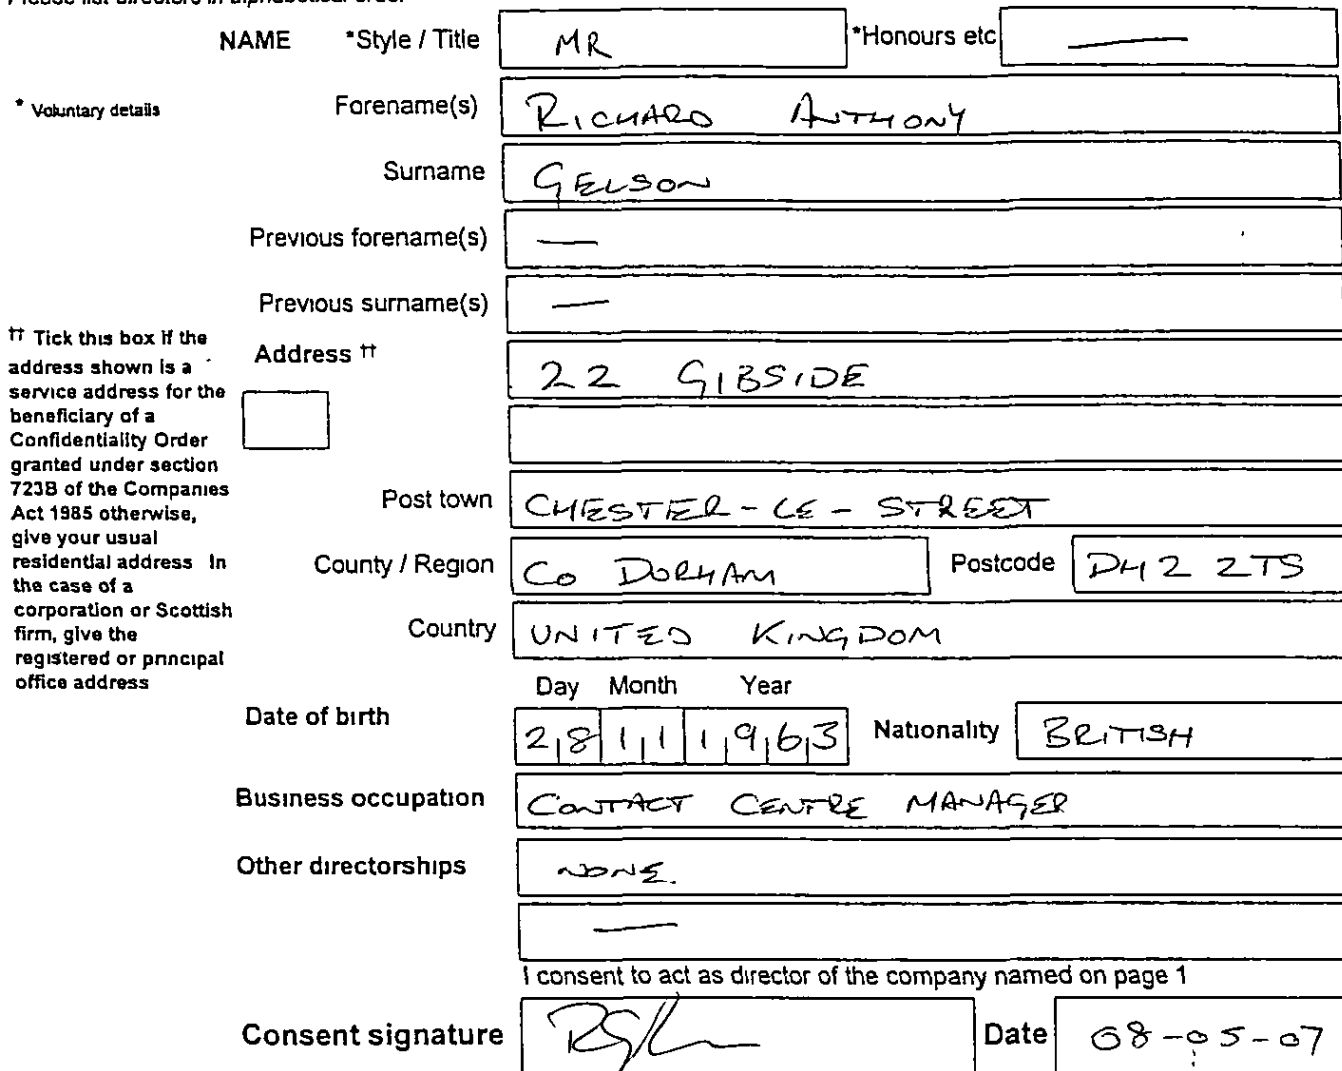 Please list directors in alphabetical order
NAME *Style / Title MR *Honours etc —
* Voluntary details Forename(s) RICHARD ANTHONY
Surname GELSON
Previous forename(s) —
Previous surname(s) —
†† Tick this box if the address shown is a service address for the beneficiary of a Confidentiality Order granted under section 723B of the Companies Act 1985 otherwise, give your usual residential address In the case of a corporation or Scottish firm, give the registered or principal office address
Address †† 22 GIBSIDE
Post town CHESTER-LE-STREET
County / Region CO DURHAM Postcode DH2 2TS
Country UNITED KINGDOM
Day Month Year
Date of birth 28 11 1963 Nationality BRITISH
Business occupation CONTACT CENTRE MANAGER
Other directorships NONE.
—
I consent to act as director of the company named on page 1
Consent signature Date 08-05-07